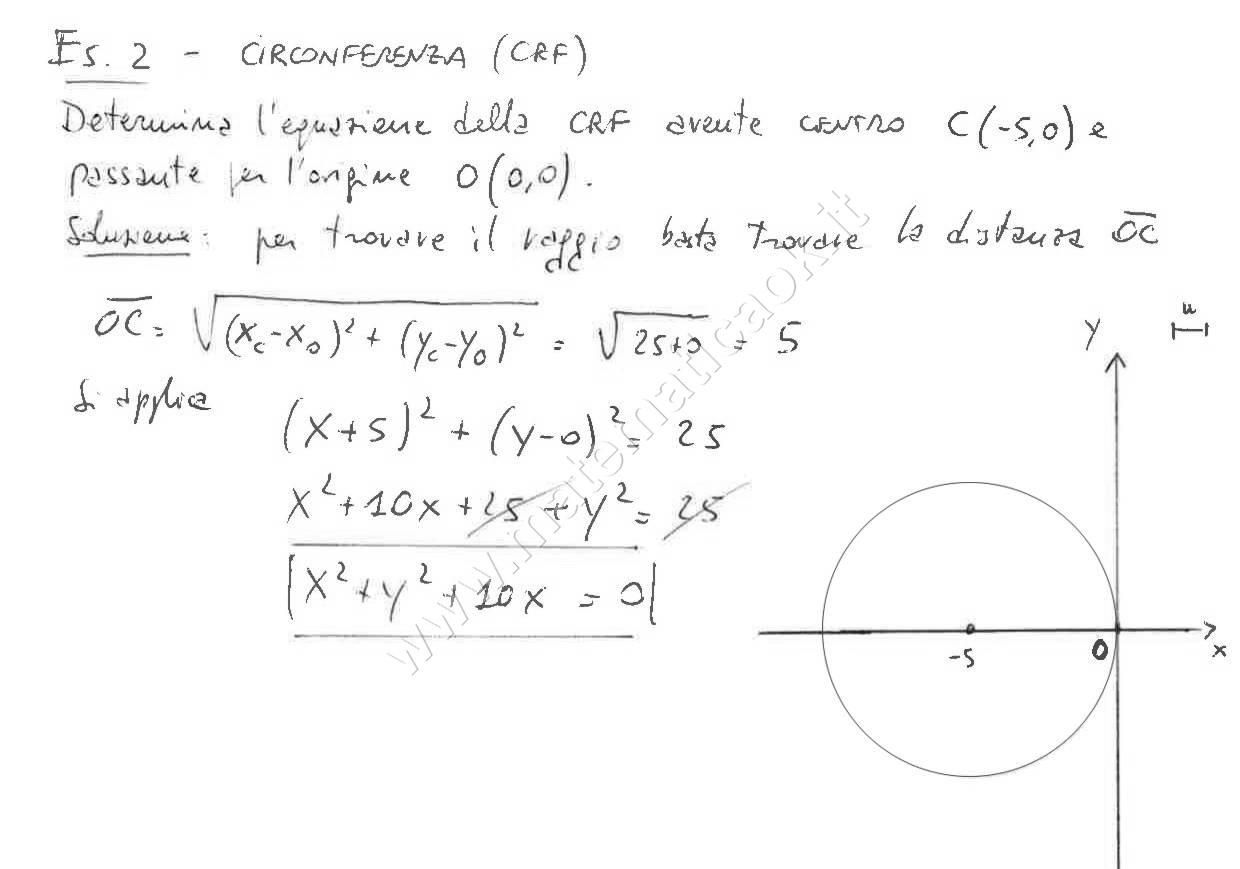 Es. 2 - CIRCONFERENZA (CRF)
Determina l'equazione della CRF avente CENTRO C(-5,0) e
passante per l'origine O(0,0).
Soluzione: per trovare il raggio basta trovare la distanza OC̅
OC̅ = √((x_c-x_o)² + (y_c-y_o)²) = √(25+0) = 5
Si applica
(x+5)² + (y-0)² = 25
x² + 10x + 25 + y² = 25
x² + y² + 10x = 0
y
u
-5
O
x
www.matematicaok.it